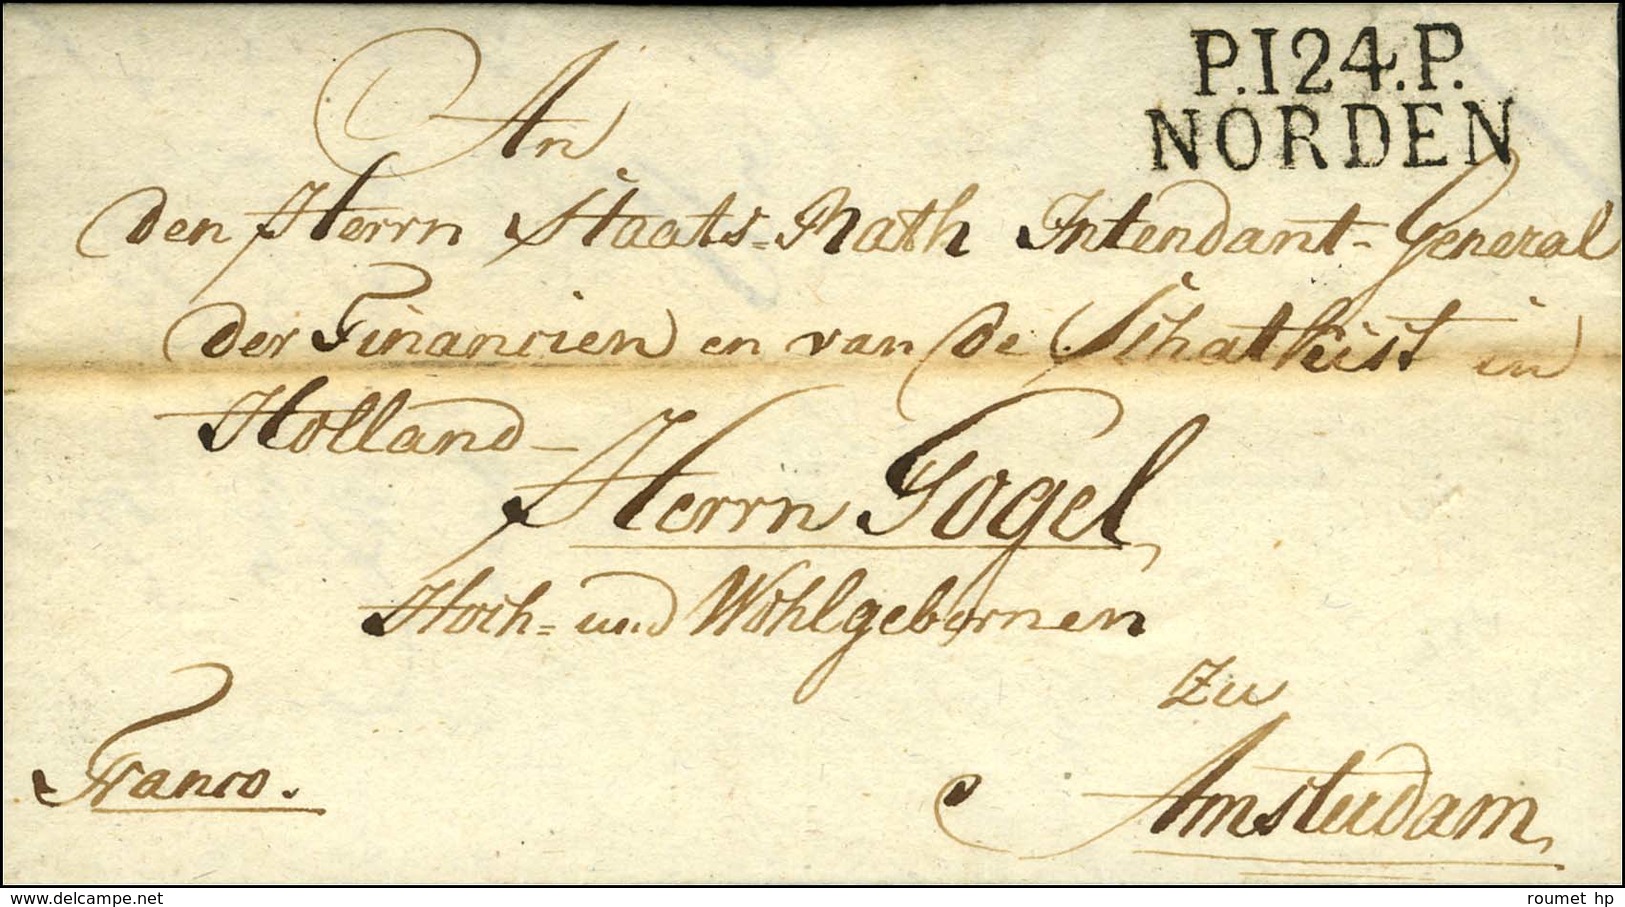 P.124.P.
NORDEN
An
den Herrn Staats-Rath Intendant-General
der Financien en van de Schatkist in
Holland-
Herrn Gogel
Hoch- und Wohlgebornen
Zu
Franco.
Amsterdam
roumet hp